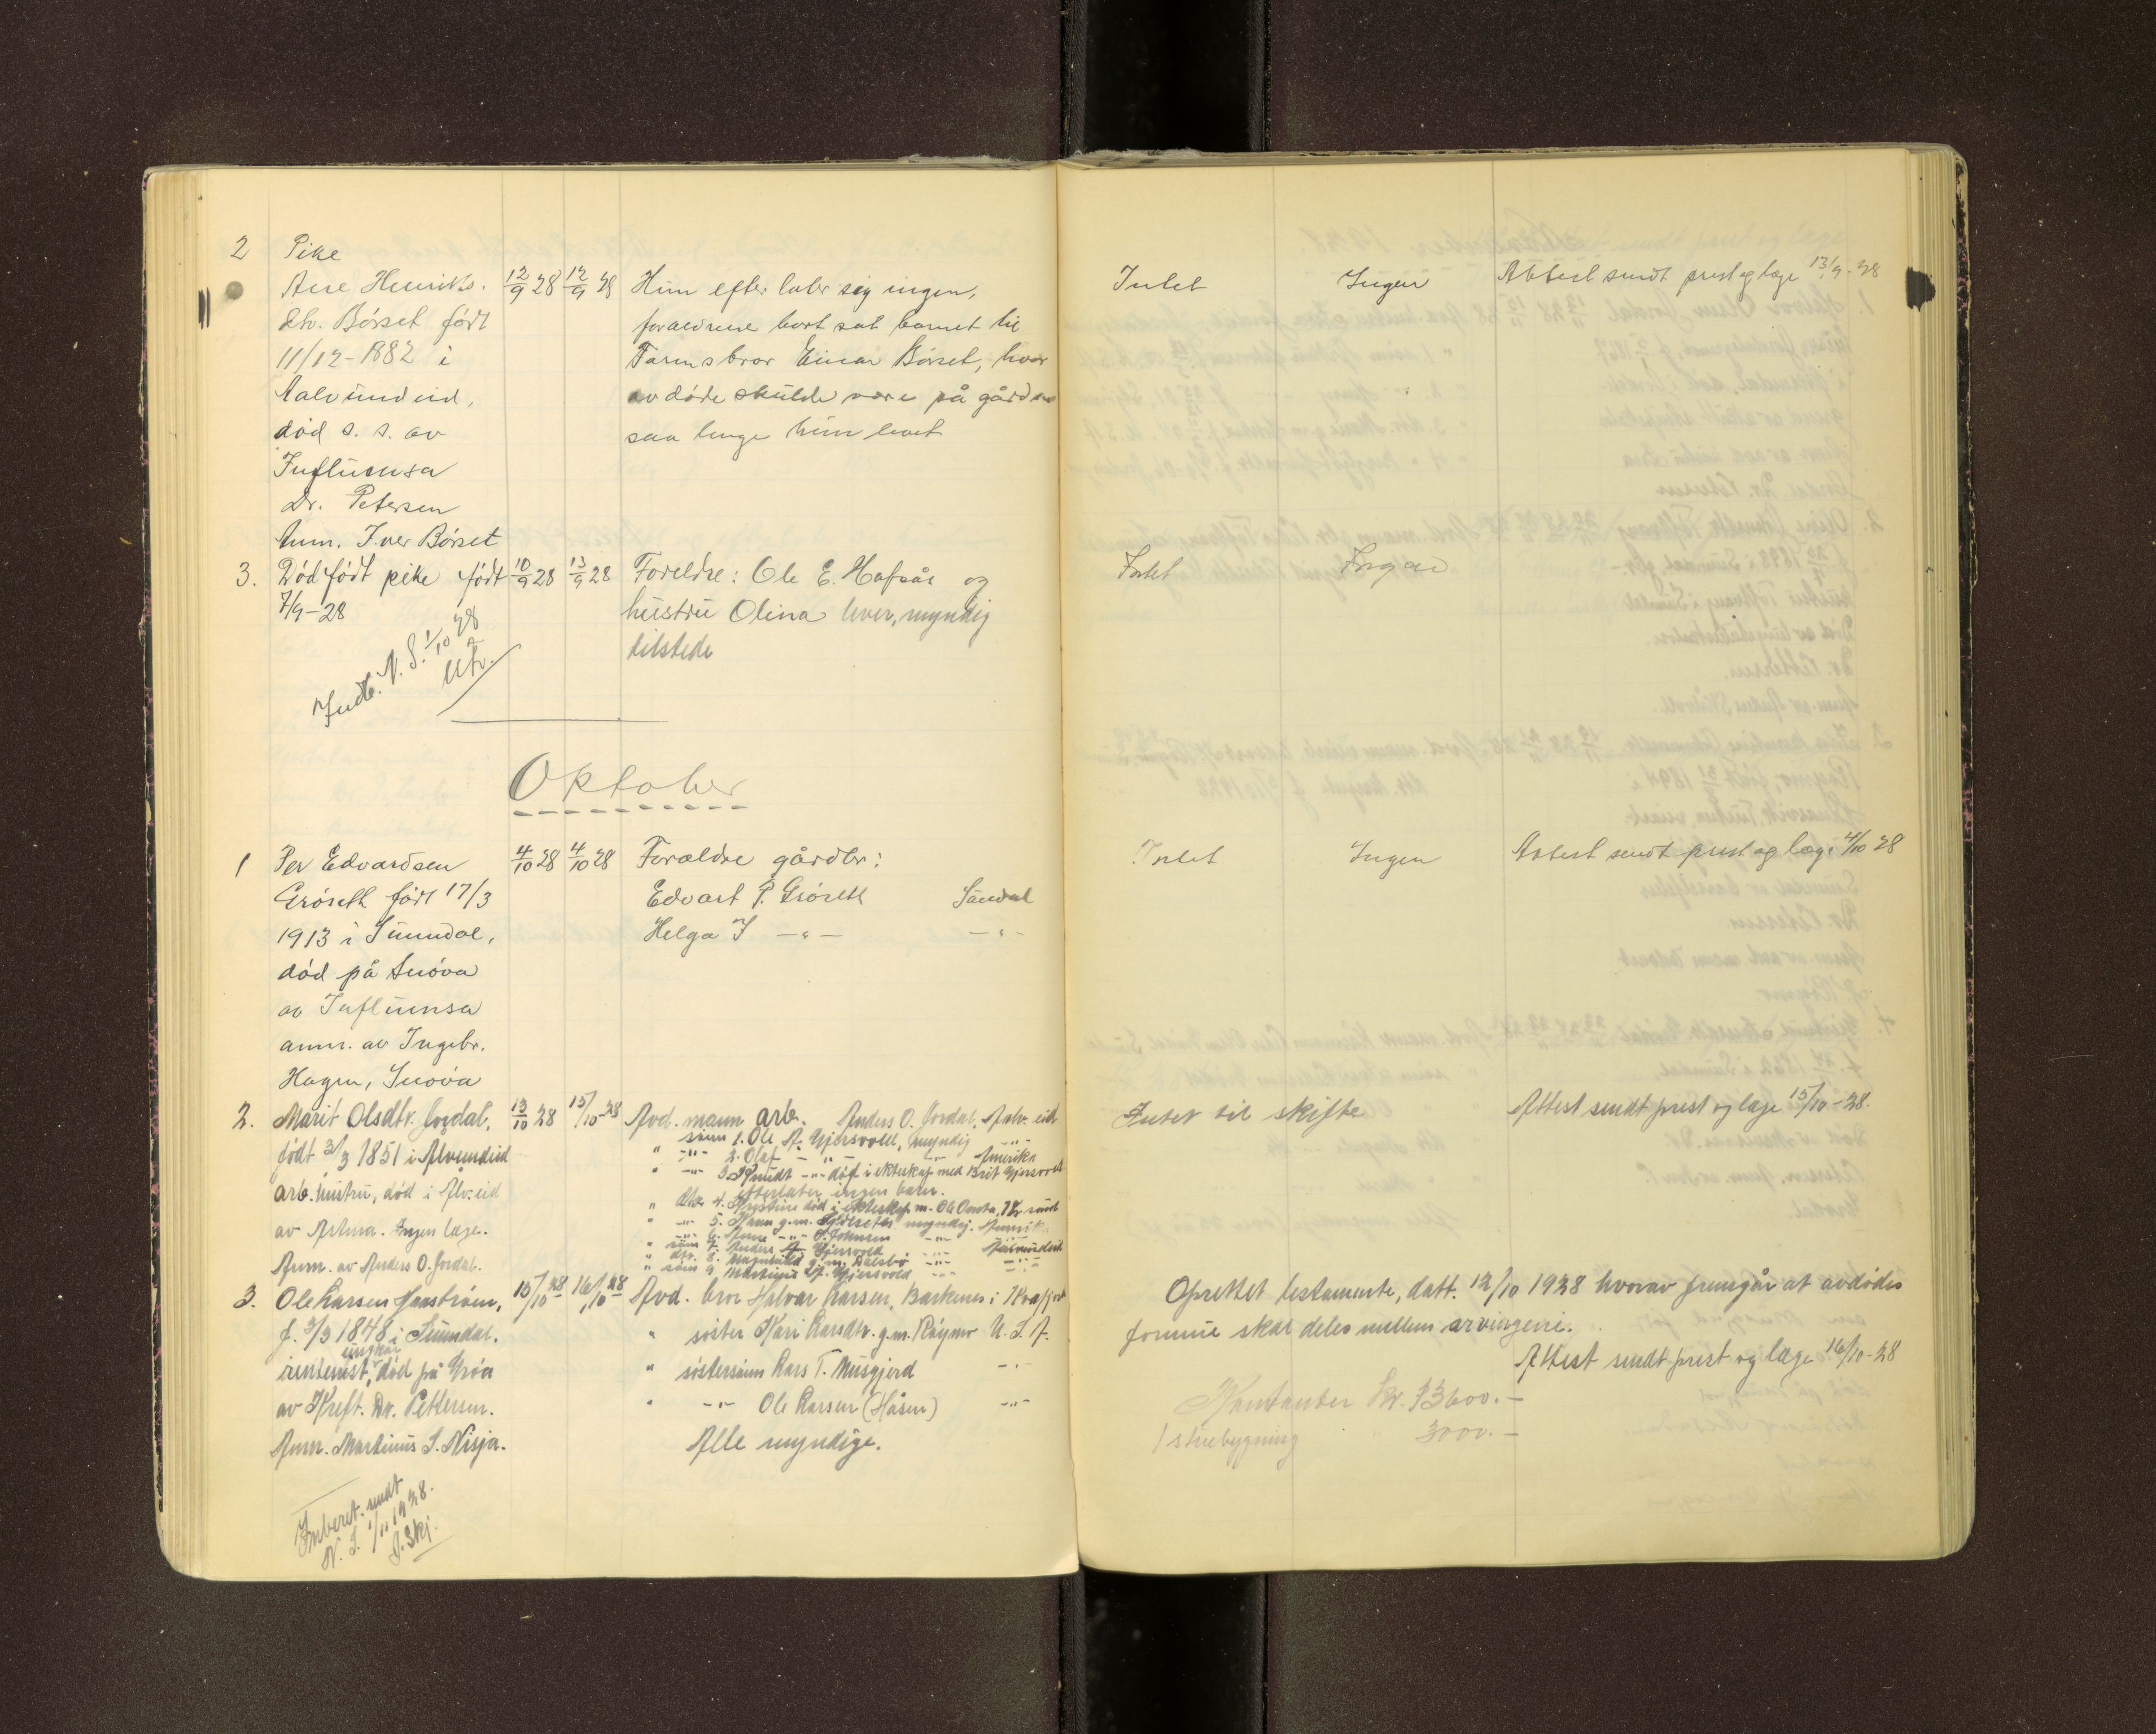 2 Pike
Ane Henriks. 12/9 28 12/9 28 Hun efter later sig ingen, Intet Ingen Attest sendt prest og læge 13/9-28
dtr. Børset født foraldrene bort sat barnet til
11/12-1882 i Farmsbror Einar Børset, hvor
Aalvundeid, avdøde skulde være på gården
død s. s. av saa lenge hun levet
Influensa
Dr. Petersen
Anm. Iver Børset
3. Dødfødt pike født 10/9 28 13/9 28 Foreldre: Ole E. Hafsås og Intet Ingen
7/9-28 hustru Olina lever, myndig
tilstede
Indb. N. S. 1/10 28
Oktober
1 Per Edvardsen 4/10 28 4/10 28 Forældre gårdbr: Intet Ingen Attest sendt prest og læge 4/10 28
Grøseth født 17/3 Edvart P. Grøseth Sundal
1913 i Sunndal, Helga I -"- -"-
død på Snøva
av Influensa
anm. av Ingebr.
Hagen, Snøva
2. Marit Olsdtr. Jordal, 13/10 28 15/10-28 Avd. mann arb. Anders O. Jordal, Aalv. eid Intet til skifte Attest sendt prest og læge 15/10-28.
født 3/3 1851 i Alvundeid " sønn 1. Ole A. Gjersvold, myndig -"-
arb. hustru, død i Alv.eid " -"- 2. Olaf -"- -"- Amerika
av Astma. Ingen læge. " -"- 3. Knudt -"- død i ekteskap med Brit Gjersvold
Anm. av Anders O. Jordal. efterlater ingen barn.
" dtr. 4. Kristine død i ekteskap m. Ole Onsta,
" -"- 5. Hanna g.m. myndig. Amerik.
" -"- 6. Anne -"- S. Johnsen -"-
" sønn 7. Anders A. Gjersvold -"- Aalvundeid
" dtr. 8. Magnhild g.m. Dalsbø -"- -"-
" sønn 9. Martinus A. Gjersvold -"- -"-
3. Ole Larsen Haastrøm, 15/10 28 16/10 28 Avd. bror Halvar Larsen, Barkenes i Opretter testamente, datt. 12/10 1928 hvorav fremgår at avdødes
f. 3/3 1848 i Sunndal. " søster Kari Larsdtr. g.m. Røymo U. S. A. formue skal deles mellem arvingene.
ungkar
rentenist, død på Grøa " søstersønn Lars T. Musgjerd -"- Attest sendt prest og læge 16/10-28
av Kreft. Dr. Pettersen. " -"- Ole Larsen (Håsen) -"- Kontanter Kr. 13600.-
Anm. Martinus S. Nisja. Alle myndige. 1 stuebygning 3000.-
Inberet. sendt
N. S. 1/11 1928.
J. Skj.